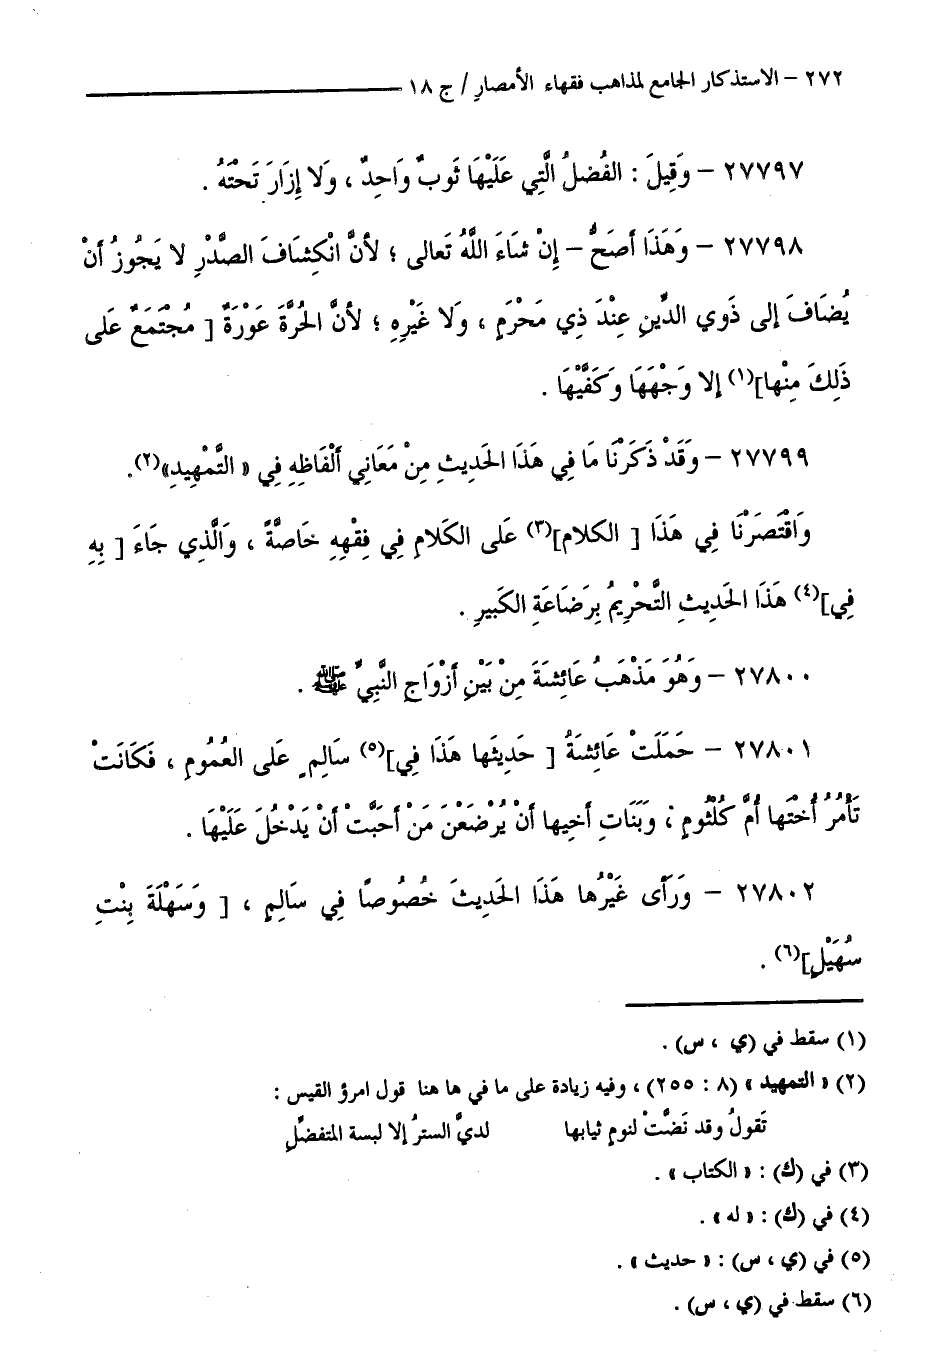 ٢٧٢ – الاستذكار الجامع لمذاهب فقهاء الأمصارِ / ج ١٨
٢٧٧٩٧ – وَقِيلَ : الفُضلُ الَّتِي عَلَيْهَا ثَوبٌ وَاحِدٌ ، وَلا إِزَارَ تَحْتَهُ .
٢٧٧٩٨ – وَهَذَا أصَحُّ – إِنْ شاءَ اللَّهُ تَعالى ؛ لأنَّ انْكِشَافَ الصَّدْرِ لا يَجُوزُ أنْ
يُضَافَ إلى ذَوي الدِّينِ عِنْدَ ذِي مَحْرَمٍ ، وَلا غَيْرِهِ ؛ لأنَّ الحُرَّةَ عَوْرَةٌ [ مُجْتَمَعٌ عَلى
ذَلِكَ مِنْها](١) إلا وَجْهَهَا وَكَفَّيْهَا .
٢٧٧٩٩ – وَقَدْ ذَكَرْنَا مَا فِي هَذَا الحَدِيثِ مِنْ مَعَانِي ألْفَاظِهِ فِي « التَّمْهِيدِ»(٢).
وَاقْتَصَرْنَا فِي هَذَا [ الكلام](٣) عَلى الكَلامِ فِي فِقْهِهِ خَاصَّةً ، وَالَّذِي جَاءَ [ بِهِ
فِي](٤) هَذَا الحَدِيثِ التَّحْرِيمُ بِرَضَاعَةِ الكَبيرِ .
٢٧٨٠٠ – وَهُوَ مَذْهَبُ عَائِشةَ مِنْ بَيْنِ أزْوَاجِ النَّبِيِّ ﷺ .
٢٧٨٠١ – حَمَلَتْ عَائِشةُ [ حَدِيثَها هَذَا فِي](٥) سَالِمٍ عَلى العُمُومِ ، فَكَانَتْ
تَأْمُرُ أُخْتَها أُمَّ كُلْثُومٍ ، وَبَنَاتِ أخِيها أنْ يُرْضَعْنَ مَنْ أحَبَّتْ أنْ يَدْخُلَ عَلَيْهَا .
٢٧٨٠٢ – وَرَأى غَيْرُها هَذَا الحَدِيثَ خُصُوصًا فِي سَالِمٍ ، [ وَسَهْلَةَ بِنْتِ
سُهَيْلٍ](٦) .
(١) سقط في (ي ، س) .
(٢) « التمهيد » (٨ : ٢٥٥) ، وفيه زيادة على ما في ها هنا قول امرؤ القيس :
تَقولُ وقد نَضَّتْ لنومٍ ثيابها لديَّ السترُ إلا لبسة المتفضِّلِ
(٣) في (ك) : « الكتاب » .
(٤) في (ك) : « له » .
(٥) في (ي ، س) : « حديث » .
(٦) سقط في (ي ، س) .